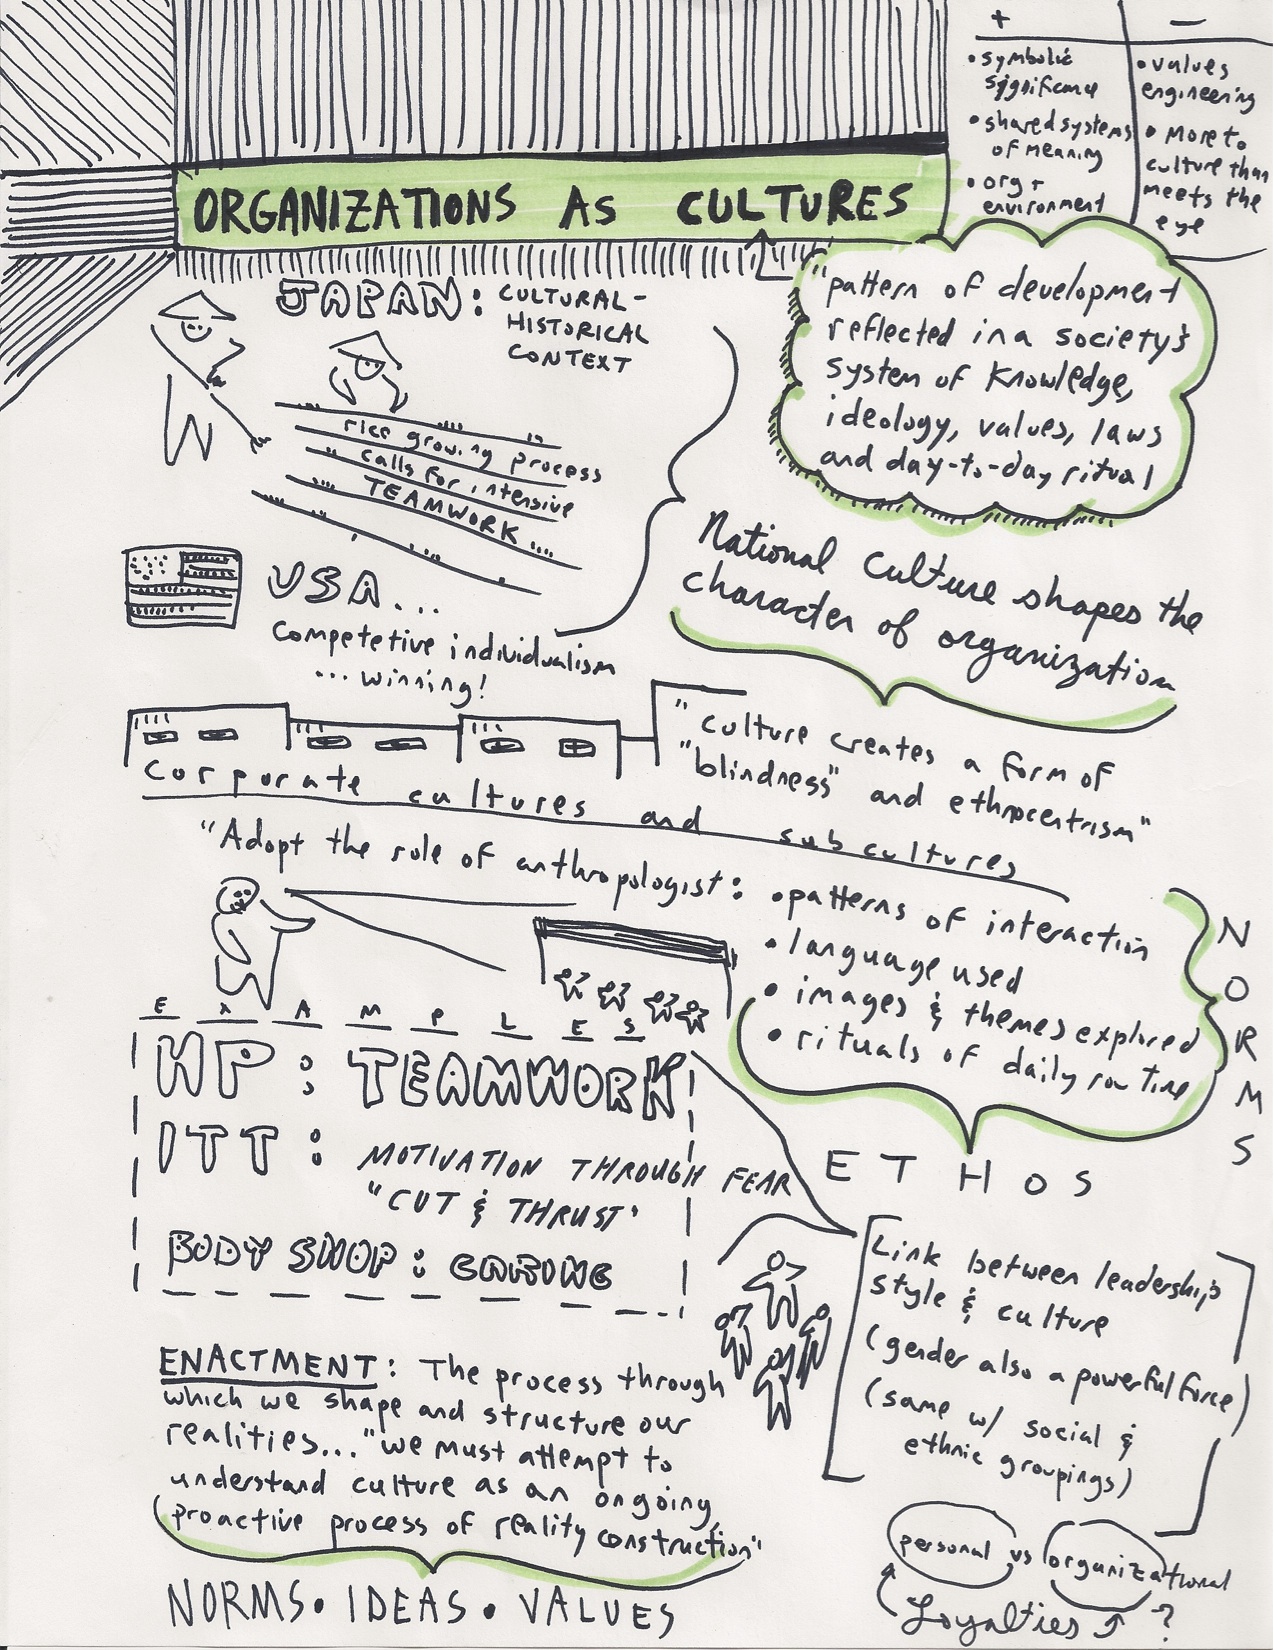 +
• symbolic
significance
• shared systems
of meaning
• org +
environment
—
• values
engineering
• More to
culture than
meets the
eye
ORGANIZATIONS AS CULTURES
"pattern of development
reflected in a society's
system of knowledge,
ideology, values, laws
and day-to-day ritual
JAPAN: CULTURAL-
HISTORICAL
CONTEXT
rice growing process
calls for intensive
TEAMWORK
USA...
Competetive individualism
...winning!
National Culture shapes the
character of organization
"culture creates a form of
"blindness" and ethnocentrism"
Corporate cultures and subcultures
"Adopt the role of anthropologist:
• patterns of interaction
• language used
• images & themes explored
• rituals of daily routine
NORMS
ETHOS
EXAMPLES
HP: TEAMWORK
ITT: MOTIVATION THROUGH FEAR
"CUT & THRUST"
BODY SHOP: CARING
Link between leadership
style & culture
(gender also a powerful force)
(same w/ social &
ethnic groupings)
personal vs organizational
Loyalties ?
ENACTMENT: The process through
which we shape and structure our
realities..."we must attempt to
understand culture as an ongoing,
proactive process of reality construction"
NORMS • IDEAS • VALUES